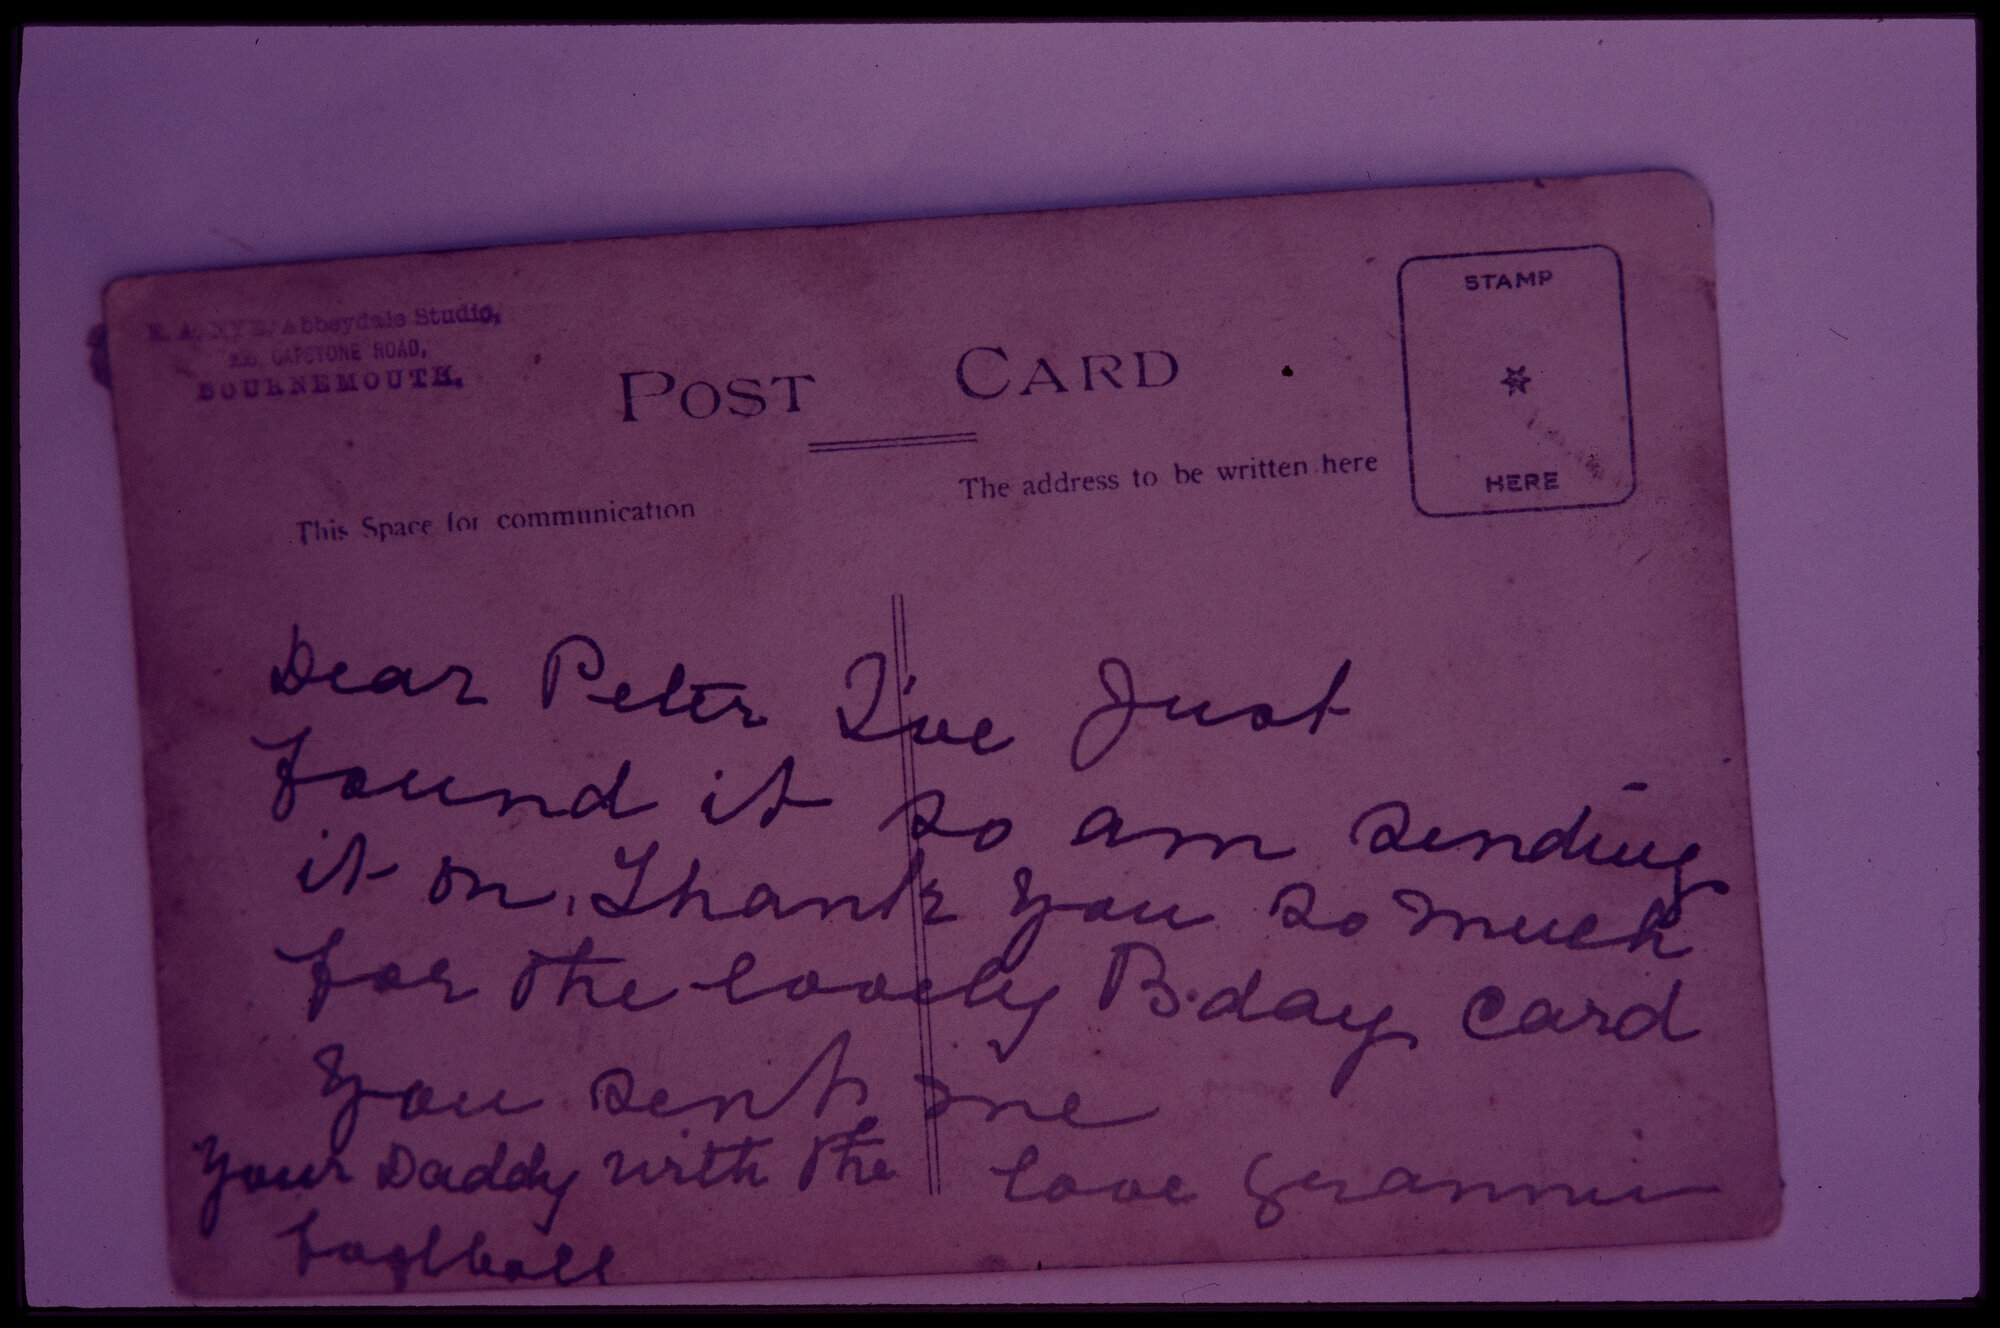 A. NYE, Abbeydale Studio,
CAPSTONE ROAD,
BOURNEMOUTH.
POST CARD
STAMP
HERE
This Space for communication
The address to be written here
Dear Peter I've Just
found it so am sending
it on. Thank you so much
for the lovely B.day Card
you sent me
love Grannie
Your Daddy with the
football